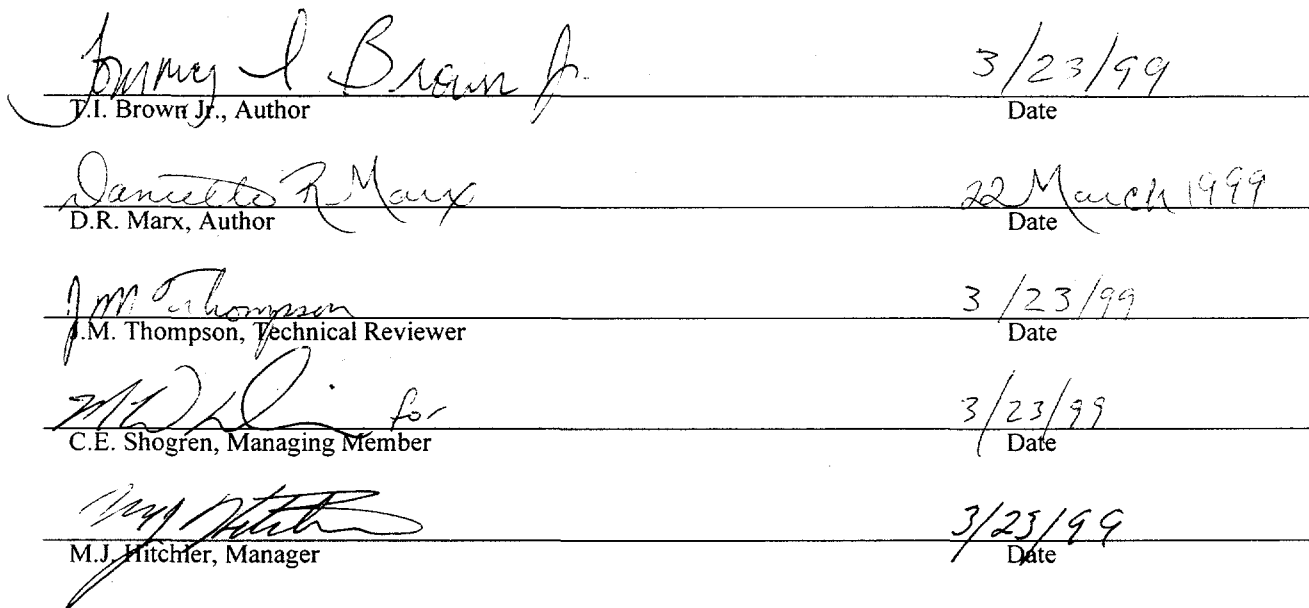 Tommy I Brown Jr. 3/23/99
T.I. Brown Jr., Author Date
Danielle R Marx 22 March 1999
D.R. Marx, Author Date
J M Thompson 3/23/99
J.M. Thompson, Technical Reviewer Date
for 3/23/99
C.E. Shogren, Managing Member Date
MJ Hitchler 3/23/99
M.J. Hitchler, Manager Date